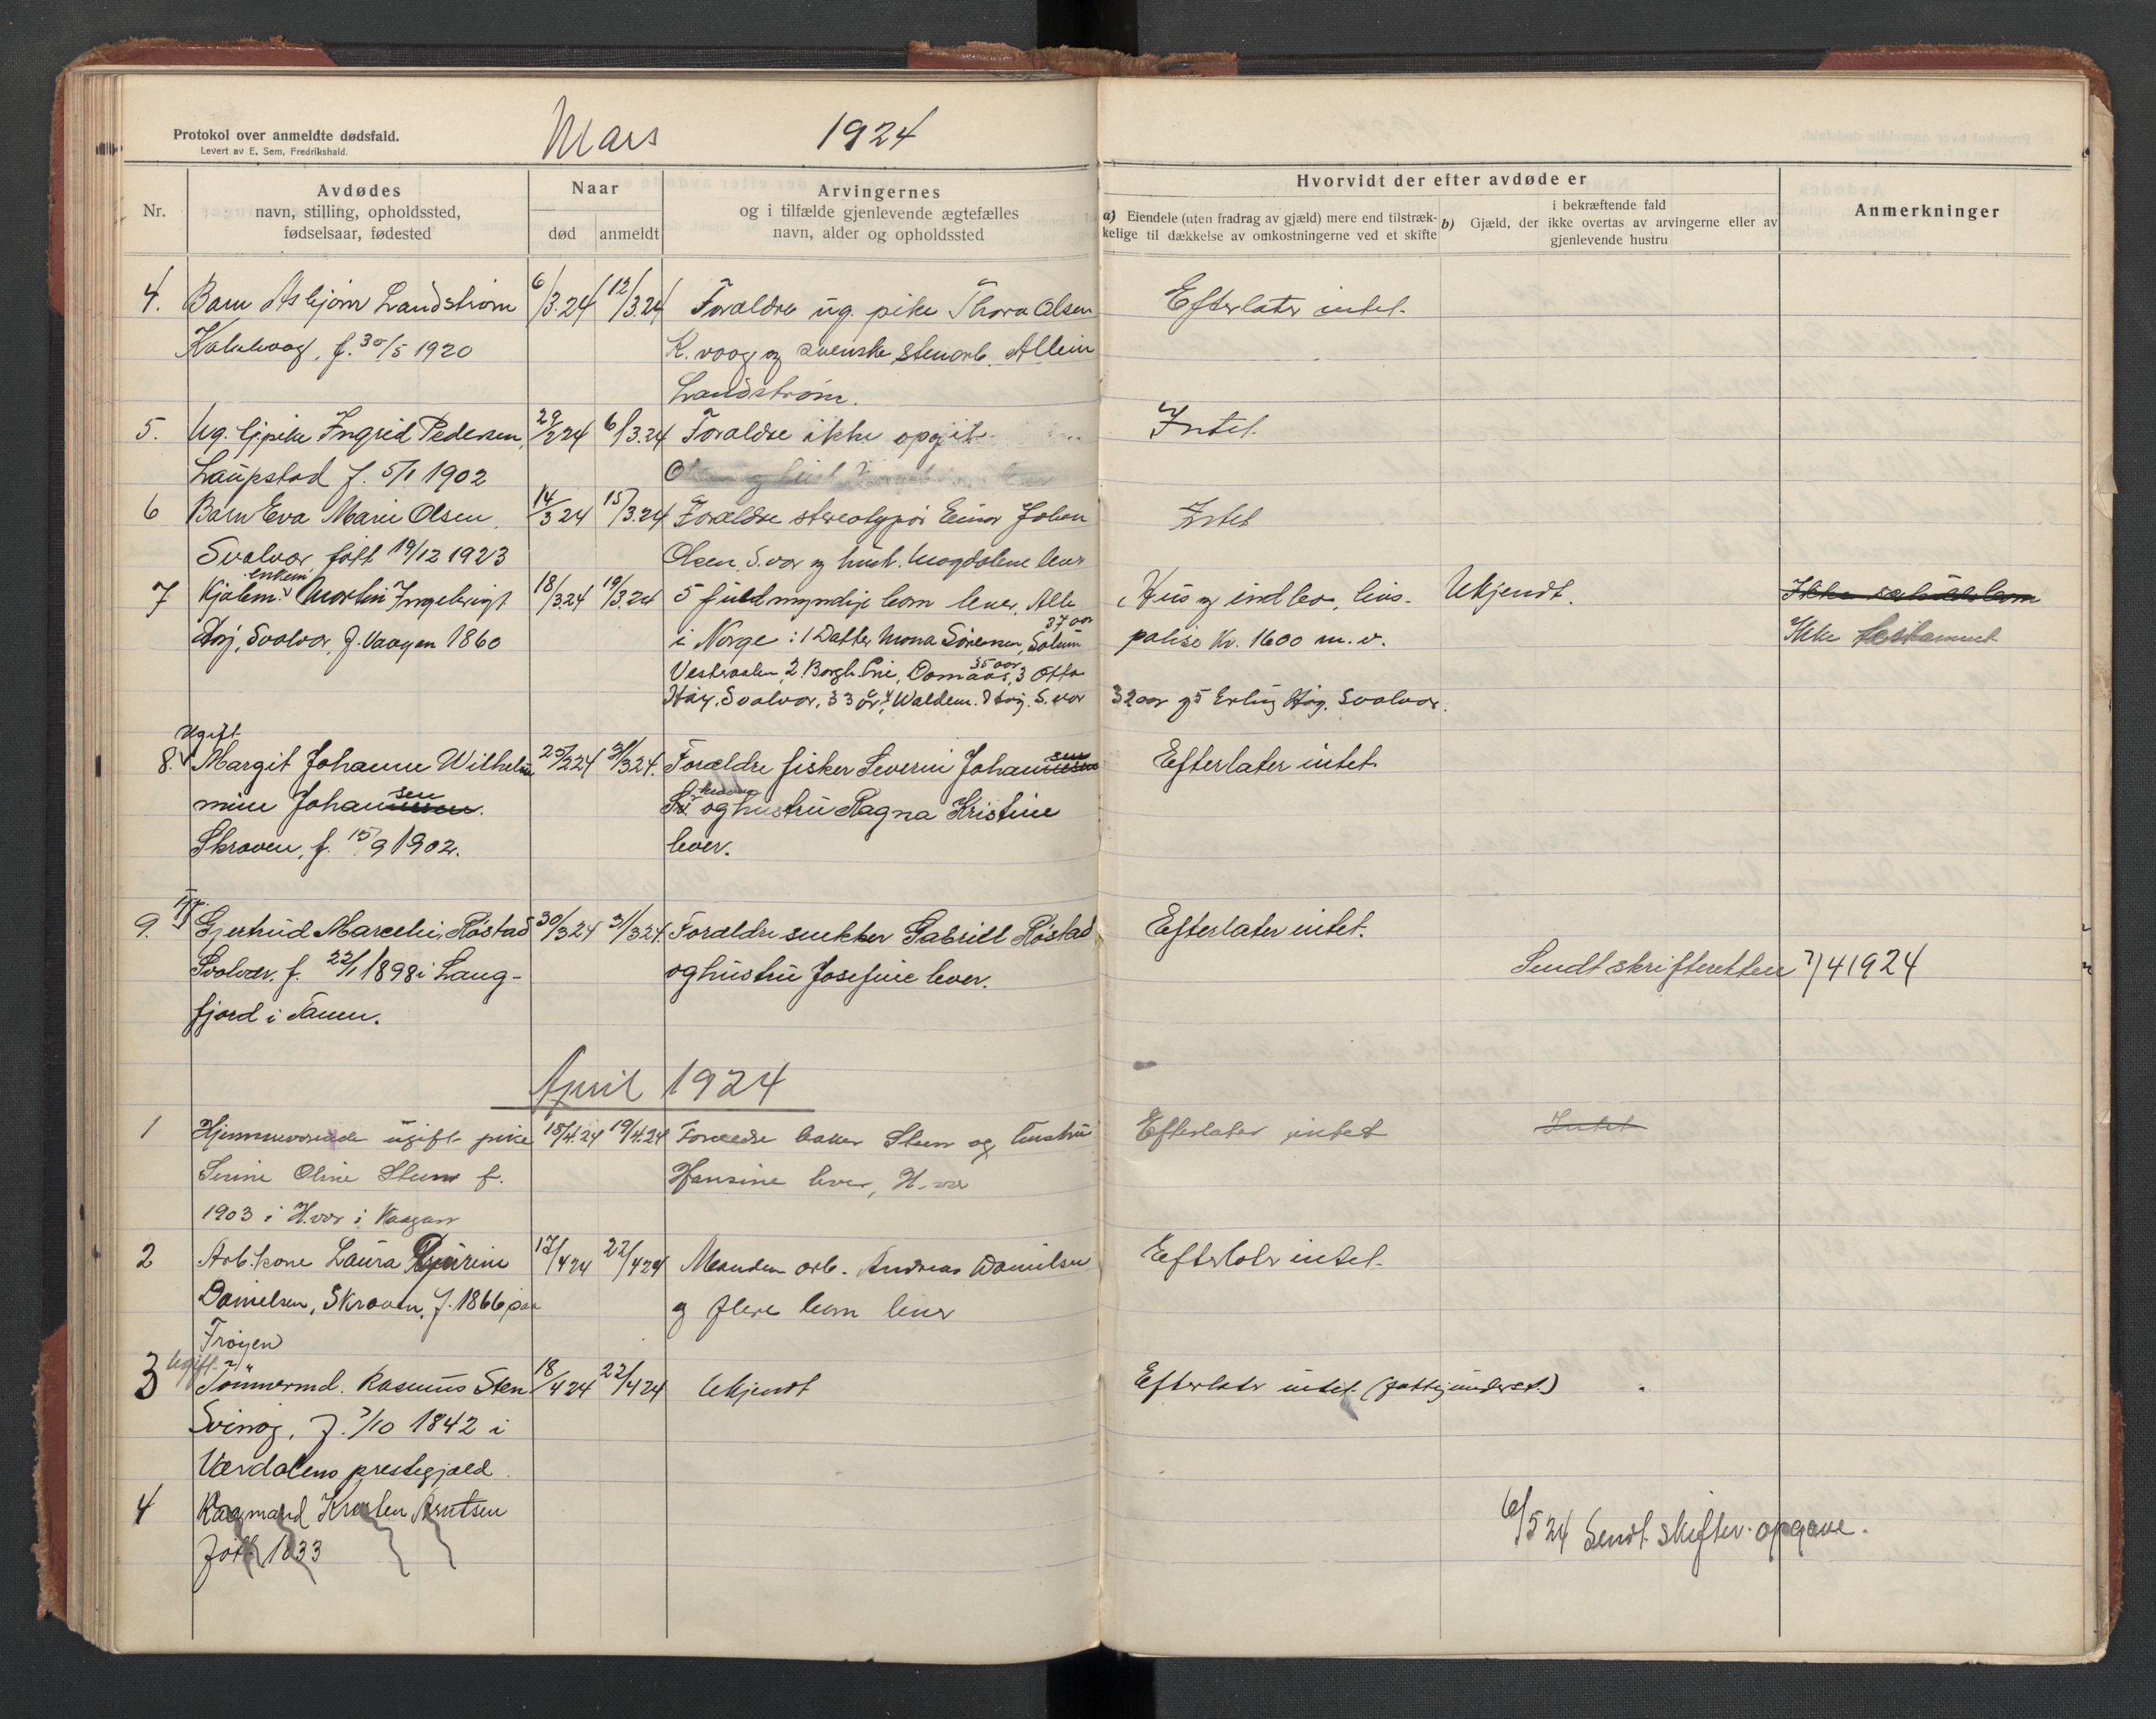 Protokol over anmeldte dødsfald.
Levert av E. Sem, Fredrikshald.
Mars 1924
Nr.
Avdødes
navn, stilling, opholdssted,
fødselsaar, fødested
Naar
død anmeldt
Arvingernes
og i tilfælde gjenlevende ægtefælles
navn, alder og opholdssted
Hvorvidt der efter avdøde er
a) Eiendele (uten fradrag av gjæld) mere end tilstræk-
kelige til dækkelse av omkostningerne ved et skifte
i bekræftende fald
b) Gjæld, der ikke overtas av arvingerne eller av
gjenlevende hustru
Anmerkninger
4. Barn Asbjørn Landstrøm 6/3.24 12/3.24 Forældre ug. pike Thora Olsen Efterlater intet.
Kabelvaag, f. 30/5 1920 K. vaag og svenske stenarb. Allein
Landstrøm.
5. Ug. tjpike Ingrid Pedersen, 29/2 24 6/3.24 Forældre ikke opgit Intet.
Laupstad f. 5/1 1902
6 Barn Eva Marie Olsen, 14/3 24 15/3.24 Forældre stereotypør Einar Johan Intet
Svolvær, født 19/12 1923 Olsen, S.vær og hust. Magdalene lever
enkem.
7 Kjølem. Martin Ingebrigt 18/3.24 19/3.24 5 fuldmyndige barn lever. Alle Hus og indbo, hus- Ukjendt. Ikke
37 aar
Høij, Svolvær, f. Vaagan 1860 i Norge: 1 Datter Mona Sørensen, Solum polise Kr. 1600 m. v. Ikke testament
35 aar
Vesteraalen, 2 Borgh. Lie, Domaas, 3 Otto
Høij, Svolvær, 33 år, 4 Waldem. Høij, S.vær 32 aar og 5 Erling Høij, Svolvær.
Ugift
8. Margit Johanne Wilhel- 25/2 24 31/3 24. Forældre fisker Severin Johansen Efterlater intet.
mine Johansen. Skroven og hustru Ragna Kristine
Skroven, f. 15/9 1902. lever.
9. Gjertrud Marcelie Røstad 30/3 24 31/3 24. Forældre snekker Gabriell Røstad Efterlater intet.
Svolvær. f. 22/1 1898 i Lang- og hustru Josefine lever. Sendt skifteretten 7/4 1924
fjord i Tanen.
April 1924
1 Hjemmeværende ugift pike 18/4.24 19/4.24 Forældre baker Steen og hustru Efterlater intet Intet
Serine Oline Steen f. Hansine lever, H.vær
1903 i H.vær i Vaagan
2 Arb.kone Laura 17/4 24 22/4 24 Manden arb. Andreas Danielsen Efterlater intet.
Danielsen, Skroven, f. 1866 paa og flere barn lever
Frøyen
Ugift
3 Tømmermd. Rasmus Sten 18/4 24 22/4 24 Ukjendt Efterlater intet. (fattigunderst.)
Svinøy, f. 7/10 1842 i
Værdalens prestegjæld.
4 Kaarmand Krosten Arntsen
født 1833
6/5 24 Sendt skifter. opgave.